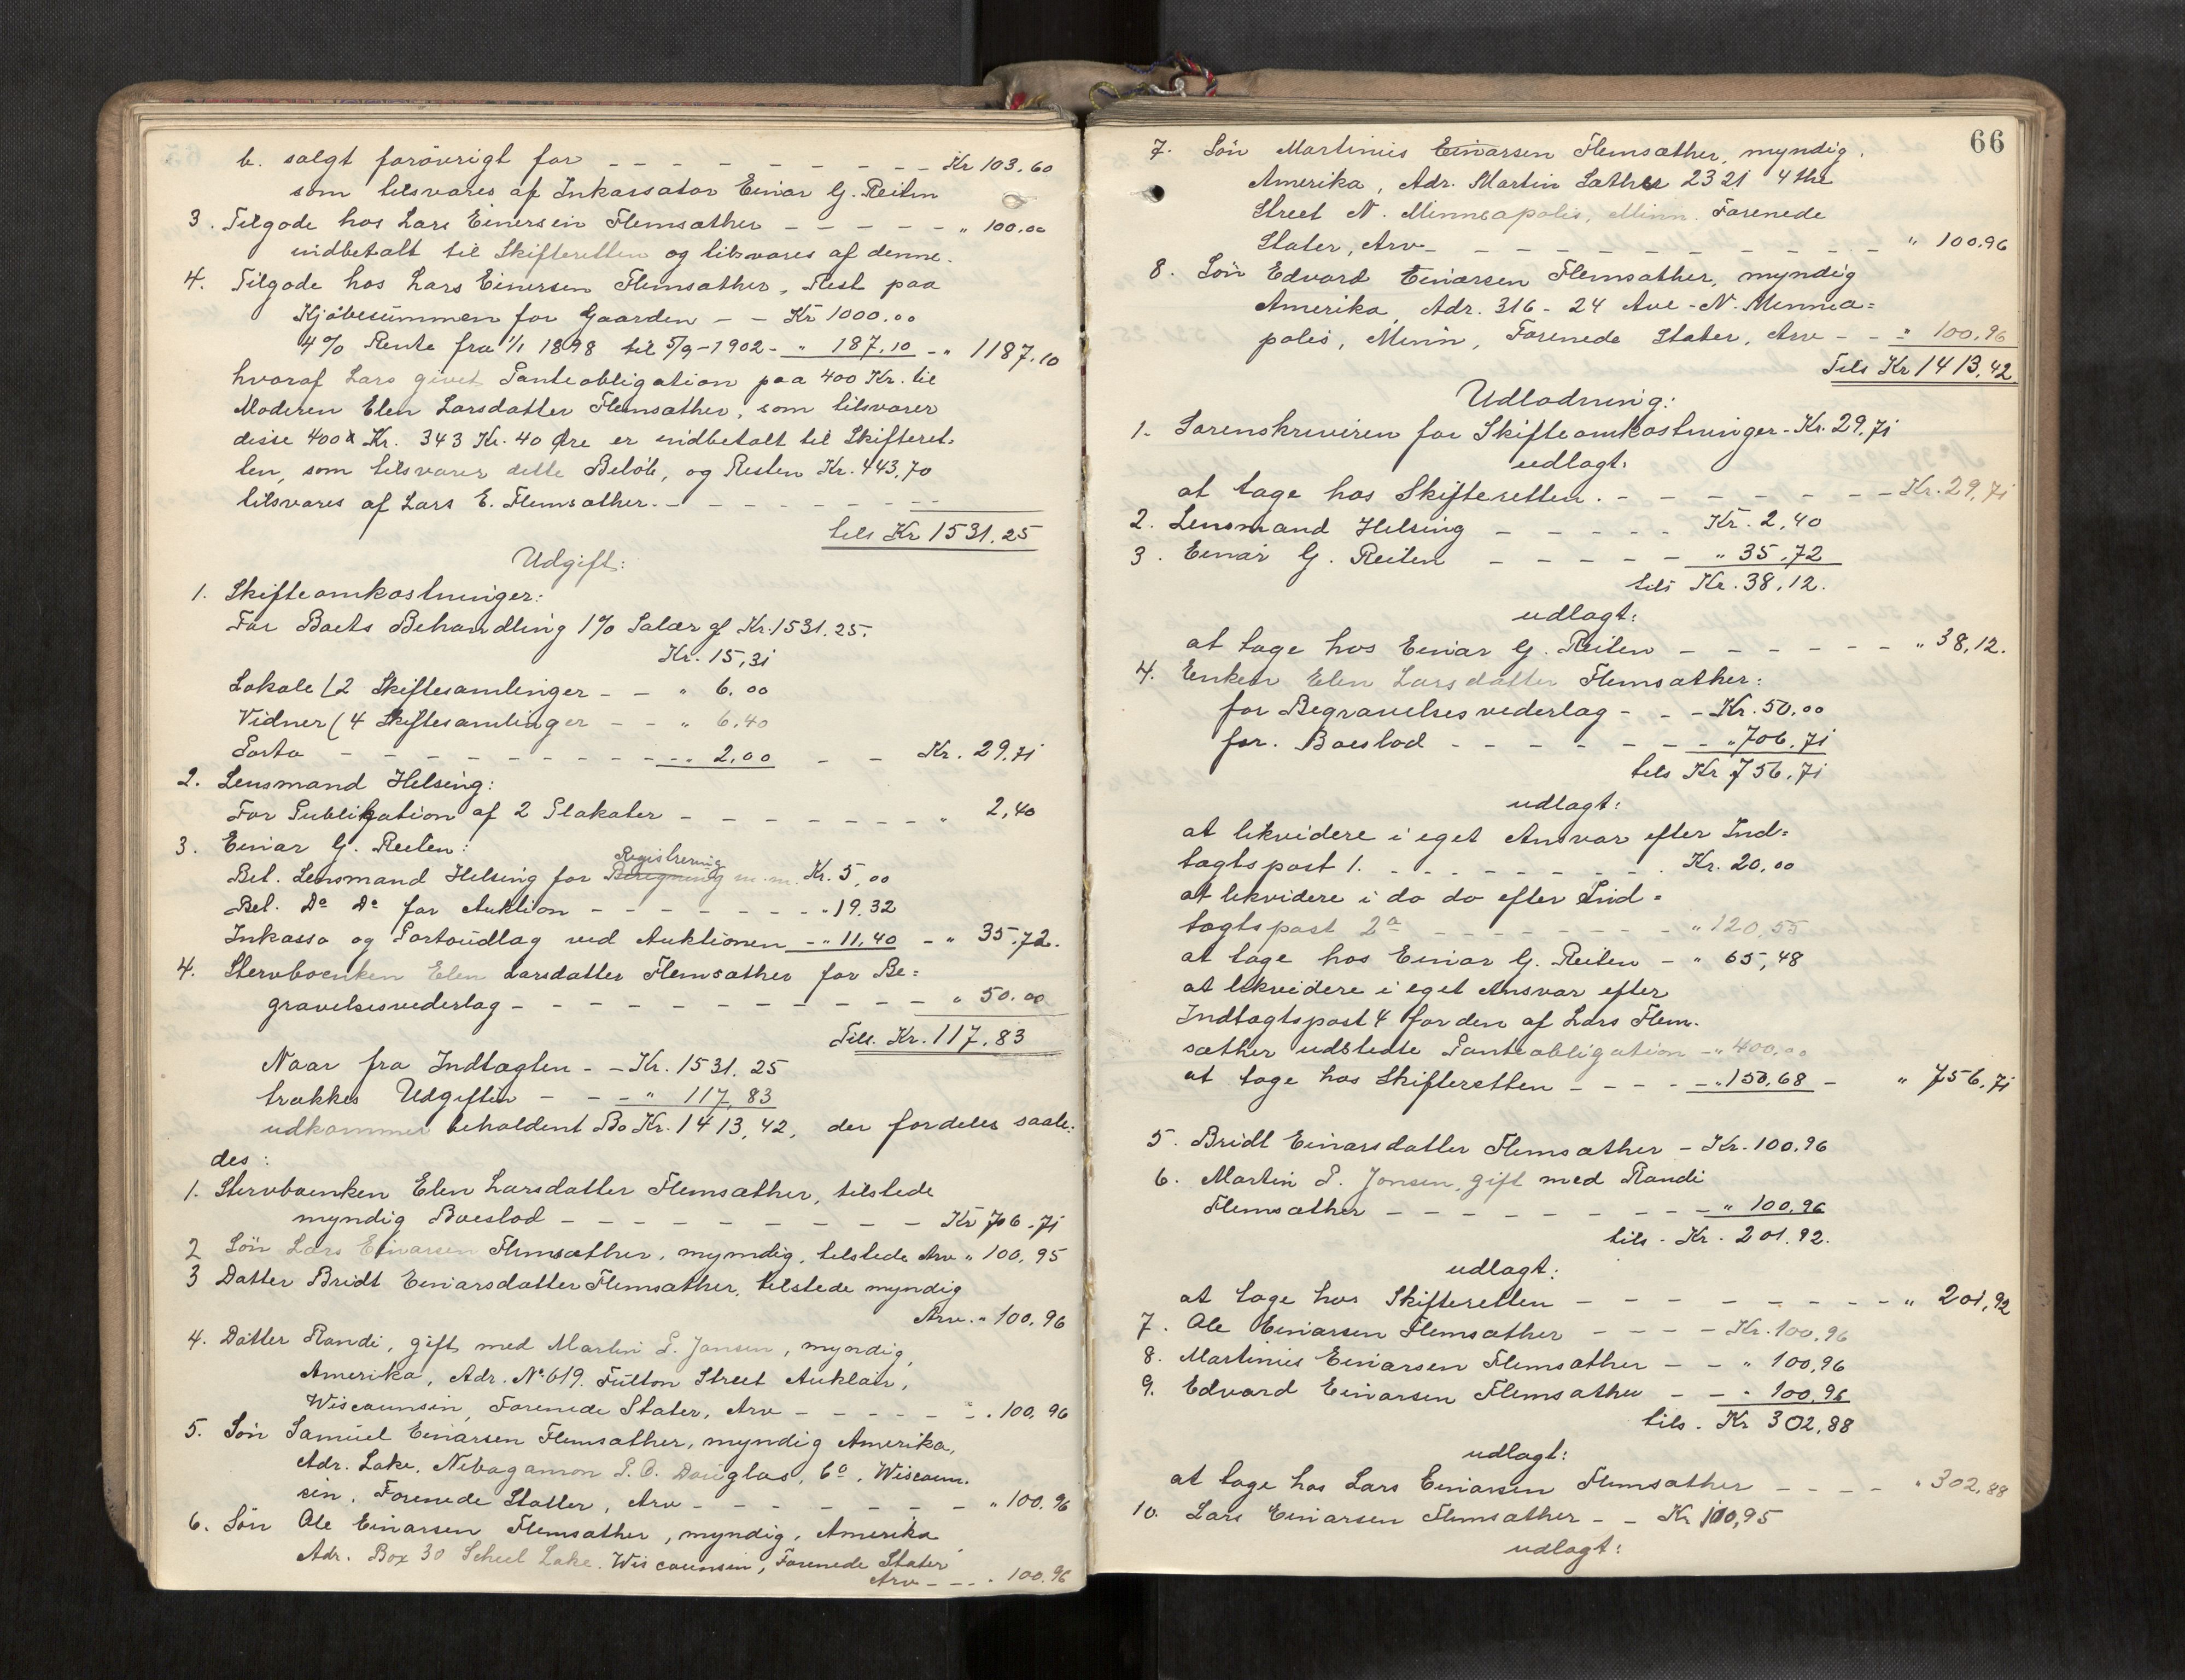 b. solgt forøvrigt for - - - - - - - - - - Kr 103.60
som tilsvares af Inkassator Einar G. Reiten
3. Tilgode hos Lars Einersen Flemsæther - - - - - " 100.00
indbetalt til Skifteretten og tilsvares af denne.
4. Tilgode hos Lars Einersen Flemsæther, Rest paa
Kjøbesummen for Gaarden - - Kr 1000.00
4% Rente fra 1/1 1898 til 5/9-1902 - " 187.10 - " 1187.10
hvoraf Lars givet Panteobligation paa 400 Kr. til
Moderen Elen Larsdatter Flemsæther, som tilsvarer
disse 400 Kr. 343 Kr. 40 Øre er indbetalt til Skifteret-
ten, som tilsvarer dette Beløb, og Resten Kr. 443,70
tilsvares af Lars E. Flemsæther. - - - - - - - -
tils Kr 1531.25
Udgift:
1. Skifteomkostninger:
For Boets Behandling 1% Salær af Kr. 1531.25.
Kr. 15,31
Lokale / 2 Skiftesamlinger - - " 6.00
Vidner ( 4 Skiftesamlinger - - " 6.40
Porto - - - - - - - - - - " 2,00 - - Kr. 29,71
2. Lensmand Helsing:
For Publikation af 2 Plakater - - - - - - - - " 2,40
3. Einar G. Reiten:
Registrering
Bet. Lensmand Helsing for Beregning m.m. Kr. 5,00
Bet. Do Do for Auktion - - - - - - - - " 19.32
Inkasso og Portoudlag ved Auktionen - " 11,40 - " 35.72.
4. Stervboenken Elen Larsdatter Flemsæther for Be=
gravelsesvederlag - - - - - - - - - - - - " 50.00
Till. Kr. 117,83
Naar fra Indtægten - - Kr. 1531.25
trækkes Udgiften - - - " 117,83
udkommer beholdent Bo Kr. 1413,42, der fordeles saale=
des:
1. Stervboenken Elen Larsdatter Flemsæther, tilstede
myndig Boeslod - - - - - - - - - Kr 706.71
2 Søn Lars Einarsen Flemsæther, myndig, tilstede Arv " 100,95
3 Datter Bridt Einarsdatter Flemsæther, tilstede myndig
Arv. " 100,96
4. Datter Randi, gift med Martin P. Jonsen, myndig,
Amerika, Adr. No 619. Fulton Street Auklair,
Wiscounsin, Forenede Stater, Arv - - - - - - . 100,96
5. Søn Samuel Einarsen Flemsæther, myndig Amerika,
Adr. Lake. Nebagamon P. O. Douglas, Co, Wiscoun-
sin. Forenede Statter, Arv - - - - - - - - " 100.96
6. Søn Ole Einarsen Flemsæther, myndig, Amerika
Adr. Box 30 Scheel Lake. Wiscounsin, Forenede Stater
Arv - - - . 100.96
66
7. Søn Martinius Einarsen Flemsæther, myndig.
Amerika, Adr. Martin Sather 2321 4the
Street N. Minneapolis, Minn. Forenede
Stater, Arv - - - - - - - - - - - - - " 100.96
8. Søn Edvard Einarsen Flemsæther, myndig
Amerika, Adr. 316 - 24 Ave - N. Minnea=
polis, Minn, Forenede Stater, Arv - - " 100,96
Tils Kr 1413,42
Udlodning:
1. Sorenskriveren for Skifteomkostninger - Kr. 29.71
udlagt:
at tage hos Skifteretten. - - - - - - - - Kr. 29,71
2. Lensmand Helsing - - - - - Kr. 2,40
3. Einar G. Reiten - - - - - - " 35,72
tils Kr. 38,12.
udlagt:
at tage hos Einar G. Reiten - - - - - - - " 38,12.
4. Enken Elen Larsdatter Flemsæther:
for Begravelsesvederlag - - - Kr. 50,00
for. Boeslod - - - - - - - - " 706.71
tils Kr 756,71
udlagt:
at likvidere i eget Ansvar efter Ind=
tægtspost 1. - - - - - - - - - . Kr. 20,00
at likvidere i do do efter Ind=
tægtspost 2a - - - - - - - - - " 120,55
at tage hos Einar G. Reiten - " 65,48
at likvidere i eget Ansvar efter
Indtægtspost 4 for den af Lars Flem-
sæther udstedte Panteobligation - " 400,00
at tage hos Skifteretten - - - - - " 150,68 - " 756,71
5. Bridt Einarsdatter Flemsæther - Kr. 100,96
6. Martin P. Jonsen, gift med Randi
Flemsæther - - - - - - - - - - " 100,96
tils. Kr. 201,92.
udlagt:
at tage hos Skifteretten - - - - - - - - - " 201,92
7. Ole Einarsen Flemsæther - - - - Kr. 100,96
8. Martinius Einarsen Flemsæther - - " 100,96
9. Edvard Einarsen Flemsæther - - " 100,96
tils. Kr 302,88
udlagt:
at tage hos Lars Einarsen Flemsæther - - - - " 302,88
10. Lars Einarsen Flemsæther - - Kr 100,95
udlagt: